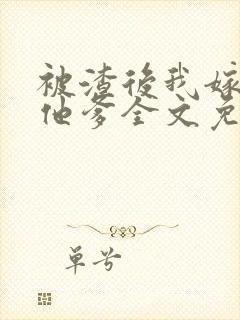 被渣后我嫁
他爹全文免
单兮